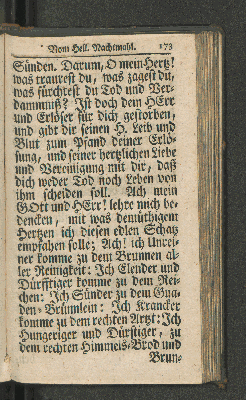 Vom Heil. Nachtmahl. 173
Sünden. Darum, O mein Hertz!
was traurest du, was zagest du,
was fürchtest du Tod und Ver-
dammniß? Ist doch dein HErr
und Erlöser für dich gestorben,
und gibt dir seinen H. Leib und
Blut zum Pfand deiner Erlö-
sung, und seiner hertzlichen Liebe
und Vereinigung mit dir, daß
dich weder Tod noch Leben von
ihm scheiden soll. Ach mein
GOtt und HErr! lehre mich be-
dencken, mit was demüthigem
Hertzen ich diesen edlen Schatz
empfahen solle; Ach! ich Unrei-
ner komme zu dem Brunnen al-
ler Reinigkeit: Ich Elender und
Dürfftiger komme zu dem Rei-
chen: Ich Sünder zu dem Gna-
den-Brünnlein: Ich Krancker
komme zu dem rechten Artzt: Ich
Hungeriger und Dürstiger, zu
dem rechten Himmels-Brod und
Brun-